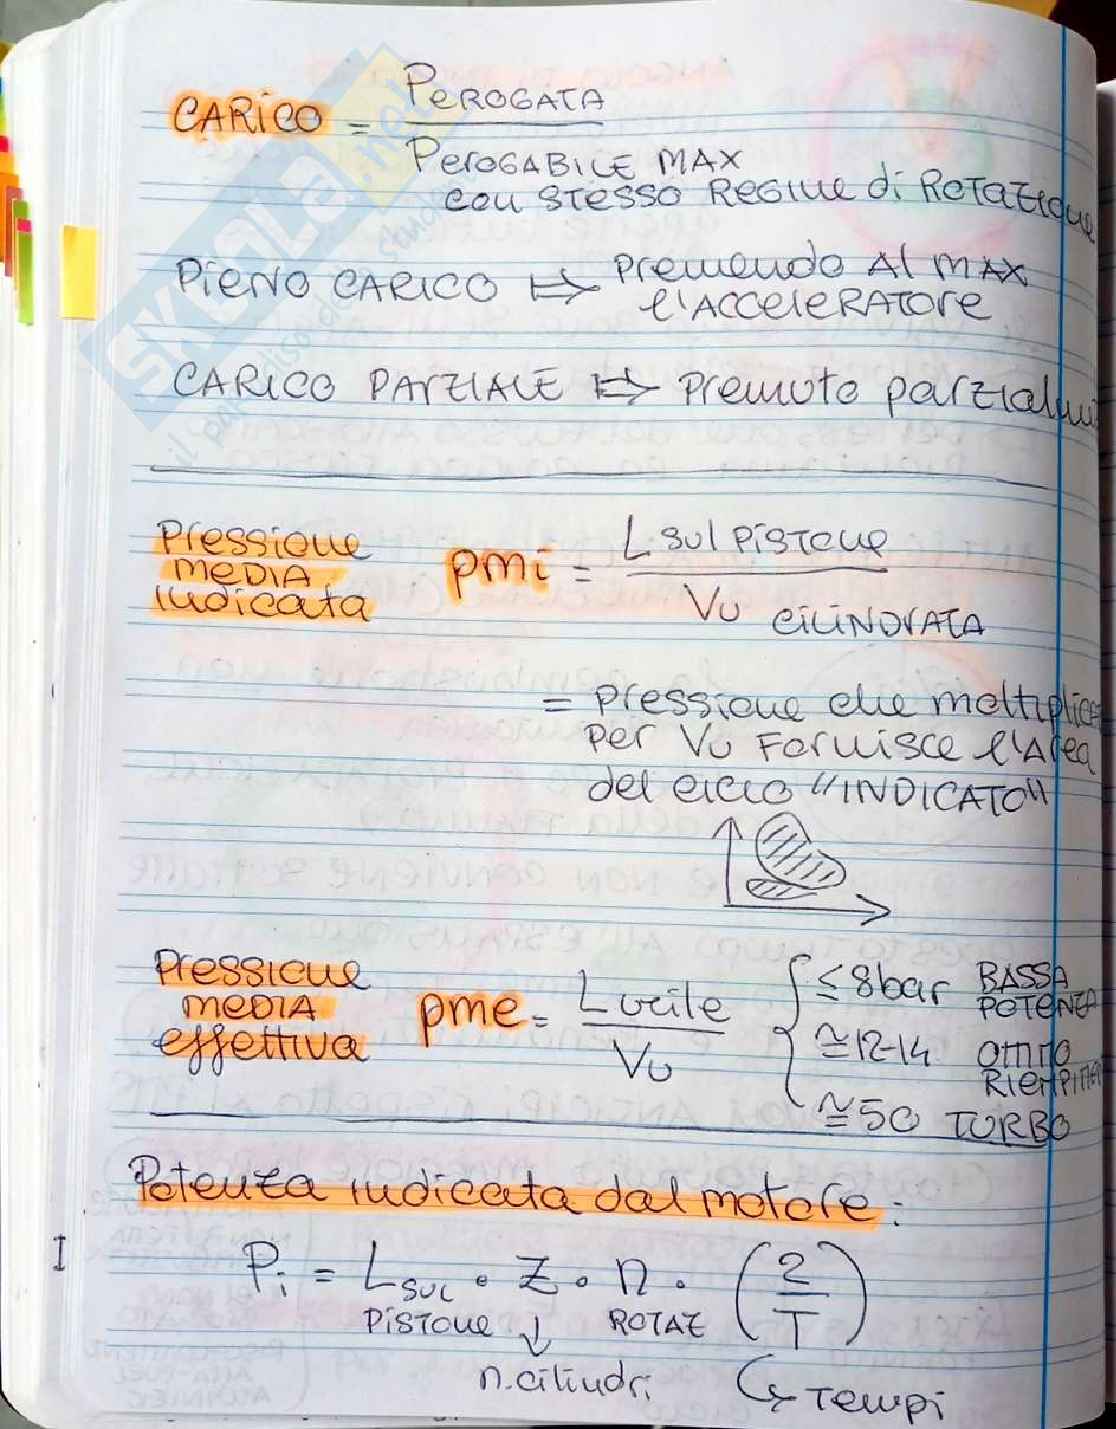 CARICO = PEROGATA
PEROGABILE MAX
con STESSO REGIME di ROTAZIONE
PIENO CARICO ⇒ Premendo Al MAX
l'ACCELERATORE
CARICO PARZIALE ⇒ Premuto parzialm
Pressione
MEDIA
indicata
pmi = L sul PISTONE
Vu CILINDRATA
= Pressione che moltiplica
Per Vu FORNISCE l'Area
del ciclo "INDICATO"
Pressione
MEDIA
effettiva
pme = L utile
Vu
≤ 8bar BASSA
POTENZA
≅ 12-14 OTTIMO
RIEMPIM
≅ 50 TURBO
Potenza indicata dal motore:
Pi = L SUL · Z · n · (2
T)
PISTONE ↓ ROTAZ
n.cilindri
Tempi
I
SKUOLA.net
il paradiso dello studente